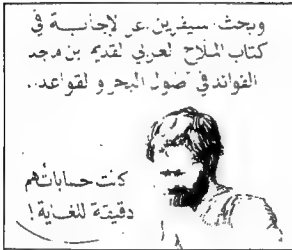 ويبحث سيفرين عن الإجابة في
كتاب الملاح العربي القديم بن ماجد
الفوائد في أصول البحر والقواعد..
كانت حساباتهم
دقيقة للغاية!